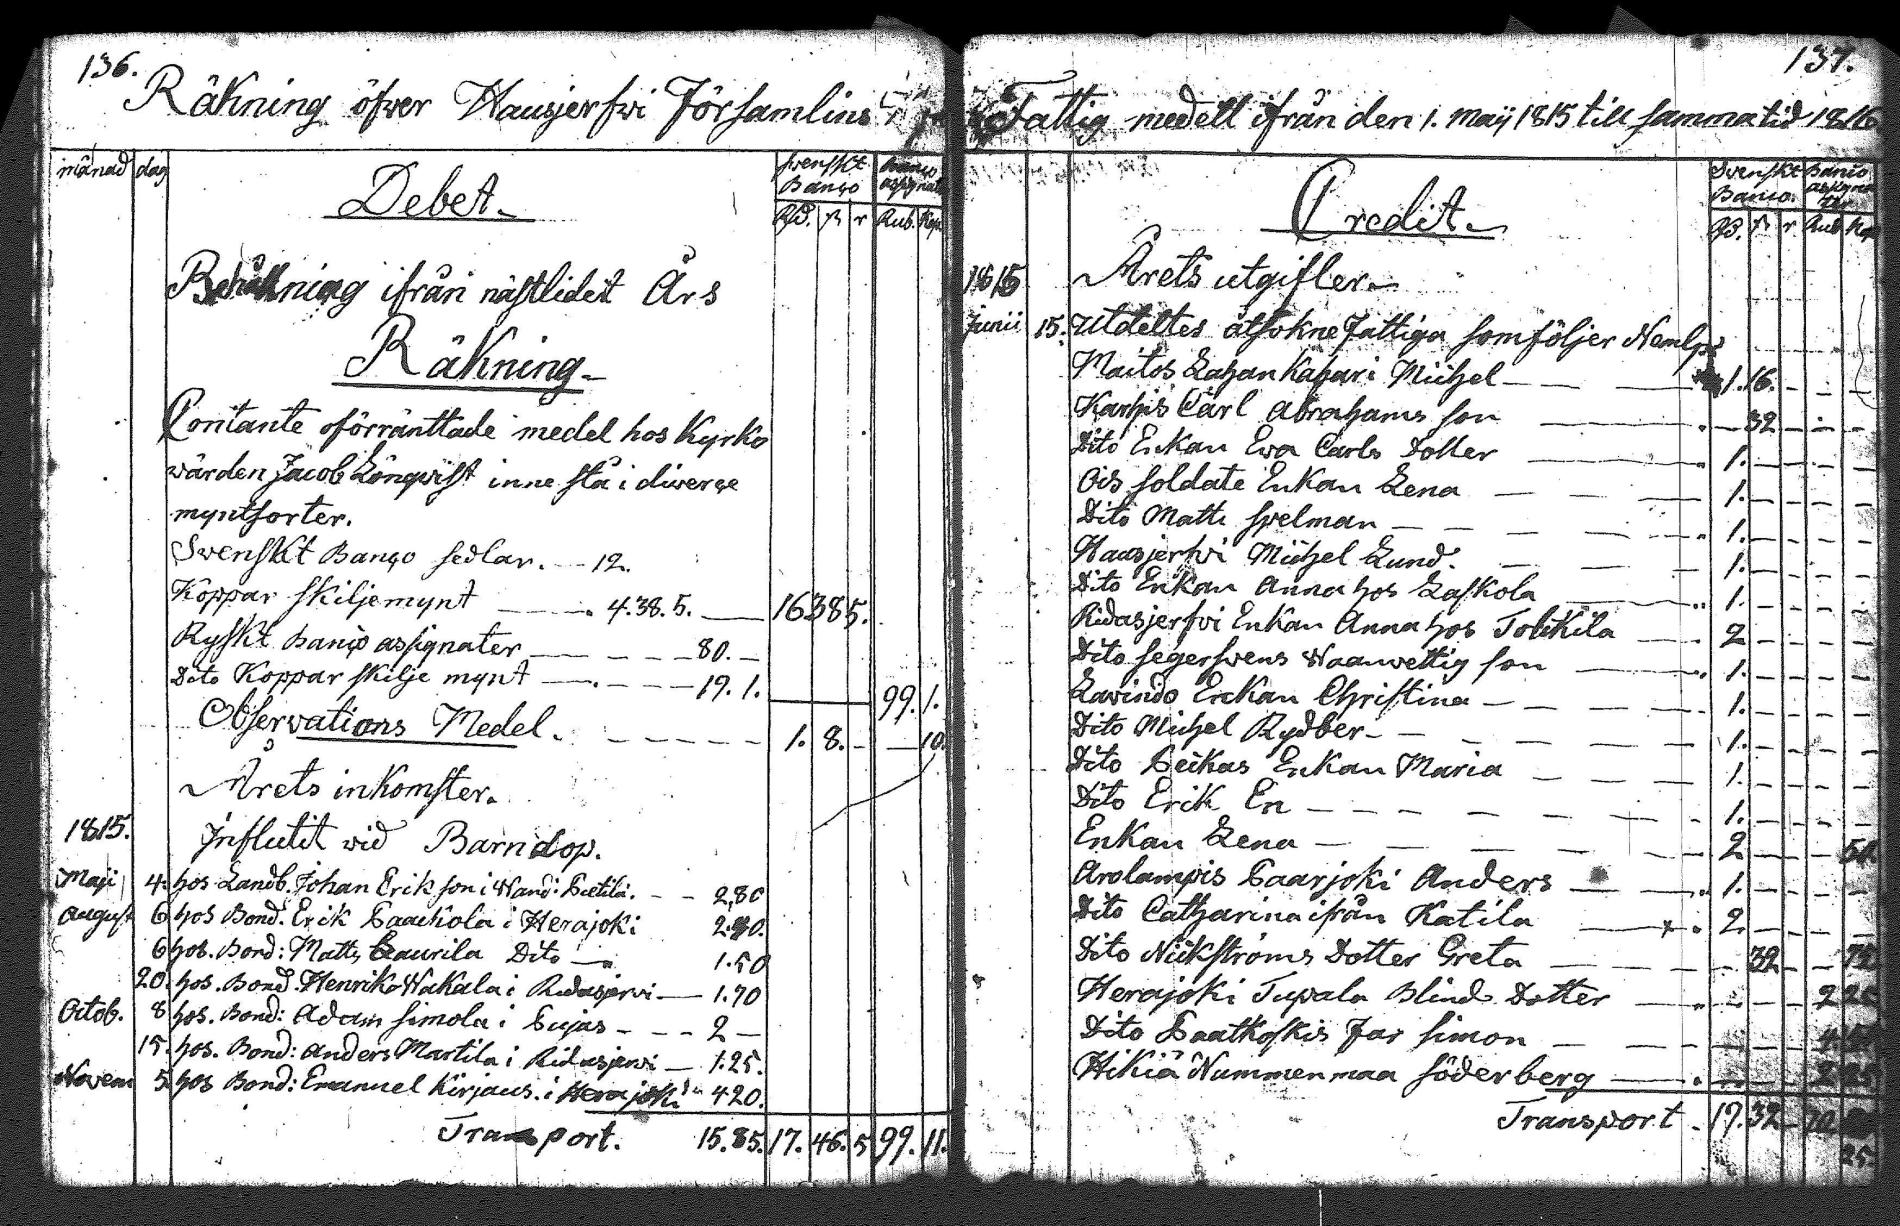 136.
Räkning öfver Hausjerfwi Församlins
månad dag
Debet.
svenskt Banço
Banço assignat
Rd. ß r Rub. Kop.
Behållning ifrån nästledet Års
Räkning
Contante oförränttade medel hos Kyrko
wärden Jacob Lönqwist inne stå i diverse
myntsorter.
Svenskt Banço sedlar. 12.
Koppar skiljemynt 4.38.5. 16 38 5.
Ryskt Banço assignater 80.
Dito Koppar skilje mynt 19. 1. 99. 1.
Observations Medel. 1. 8. 10.
Årets inkomster.
1815.
Influtit vid Barndop.
Maji 4. hos Landb. Johan Erik son i Wand: Pietilä. 2,80
August 6 hos Bond: Erik Paavola i Herajoki 2.40.
6 hos. Bond: Matts Laurila Dito 1.50
20. hos. Bond. Henrik Wakala i Ridasjerwi 1.70
Octob. 8 hos. Bond: Adam Simola i Pujas 2
15. hos. Bond: Anders Martila i Ridasjerwi 1.25.
Novem 5. hos Bond: Emanuel Kirjaus. i Herajoki 4.20.
Transport. 15.85. 17. 46. 5 99. 11.
137.
Fattig medell ifrån den 1. Maij 1815 till samma tid 1816
Credit.
Svenskt Banco.
Banco assigna ter
Rd. ß r Rub. Kop
1815 Årets utgifter
Junii 15. Utdeltes åt sokne Fattiga som följer Nemlg
Maitos Lahan Kapari Michel 1. 16.
Karhis Carl Abrahams son 32
Dito Enkan Ewa Carls Dotter 1.
Ois soldate Enkan Lena 1.
Dito Matts spelman 1.
Hausjerfwi Michel Lund. 1.
Dito Enkan Anna hos Laskola 1.
Ridasjerfwi Enkan Anna hos Tolkkila 2
Dito segersvens Waanwettig son 1.
Lavindo Enkan Christina 1.
Dito Michel Rydber 1.
Dito Peikas Enkan Maria 1.
Dito Erik En 1.
Enkan Lena 2 50
Arolampis Paarjoki Anders 1.
Dito Catharina ifrån Katila 2.
Dito Nickströms Dotter Greta 32 75
Herajoki Tupala Blind Dotter 2 25
Dito Paatkoskis Far Simon
Hikiä Nummenmaa Söderberg 2 25
Transport 17. 32 10.
25.